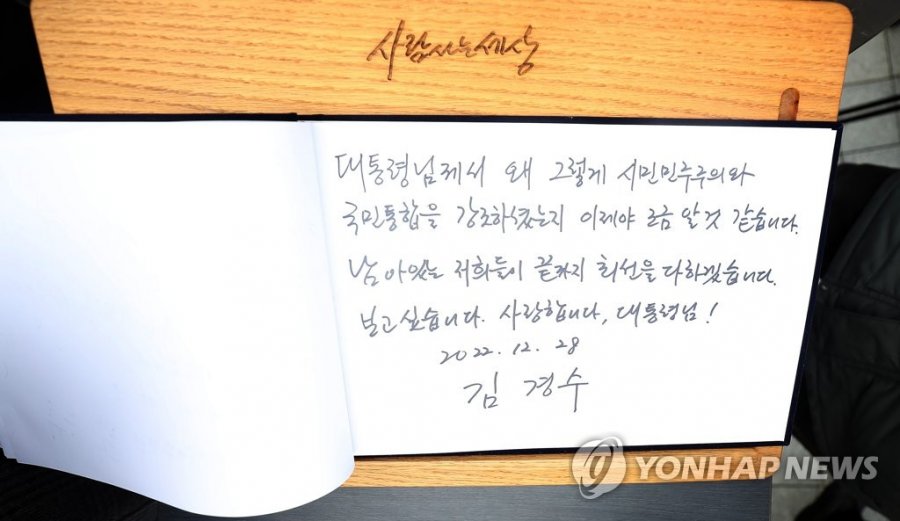 사람사는세상
대통령님께서 왜 그렇게 시민민주주의와
국민통합을 강조하셨는지 이제야 조금 알것 같습니다.
남아있는 저희들이 끝까지 최선을 다하겠습니다.
보고싶습니다. 사랑합니다, 대통령님!
2022.12.28
김경수
YONHAP NEWS